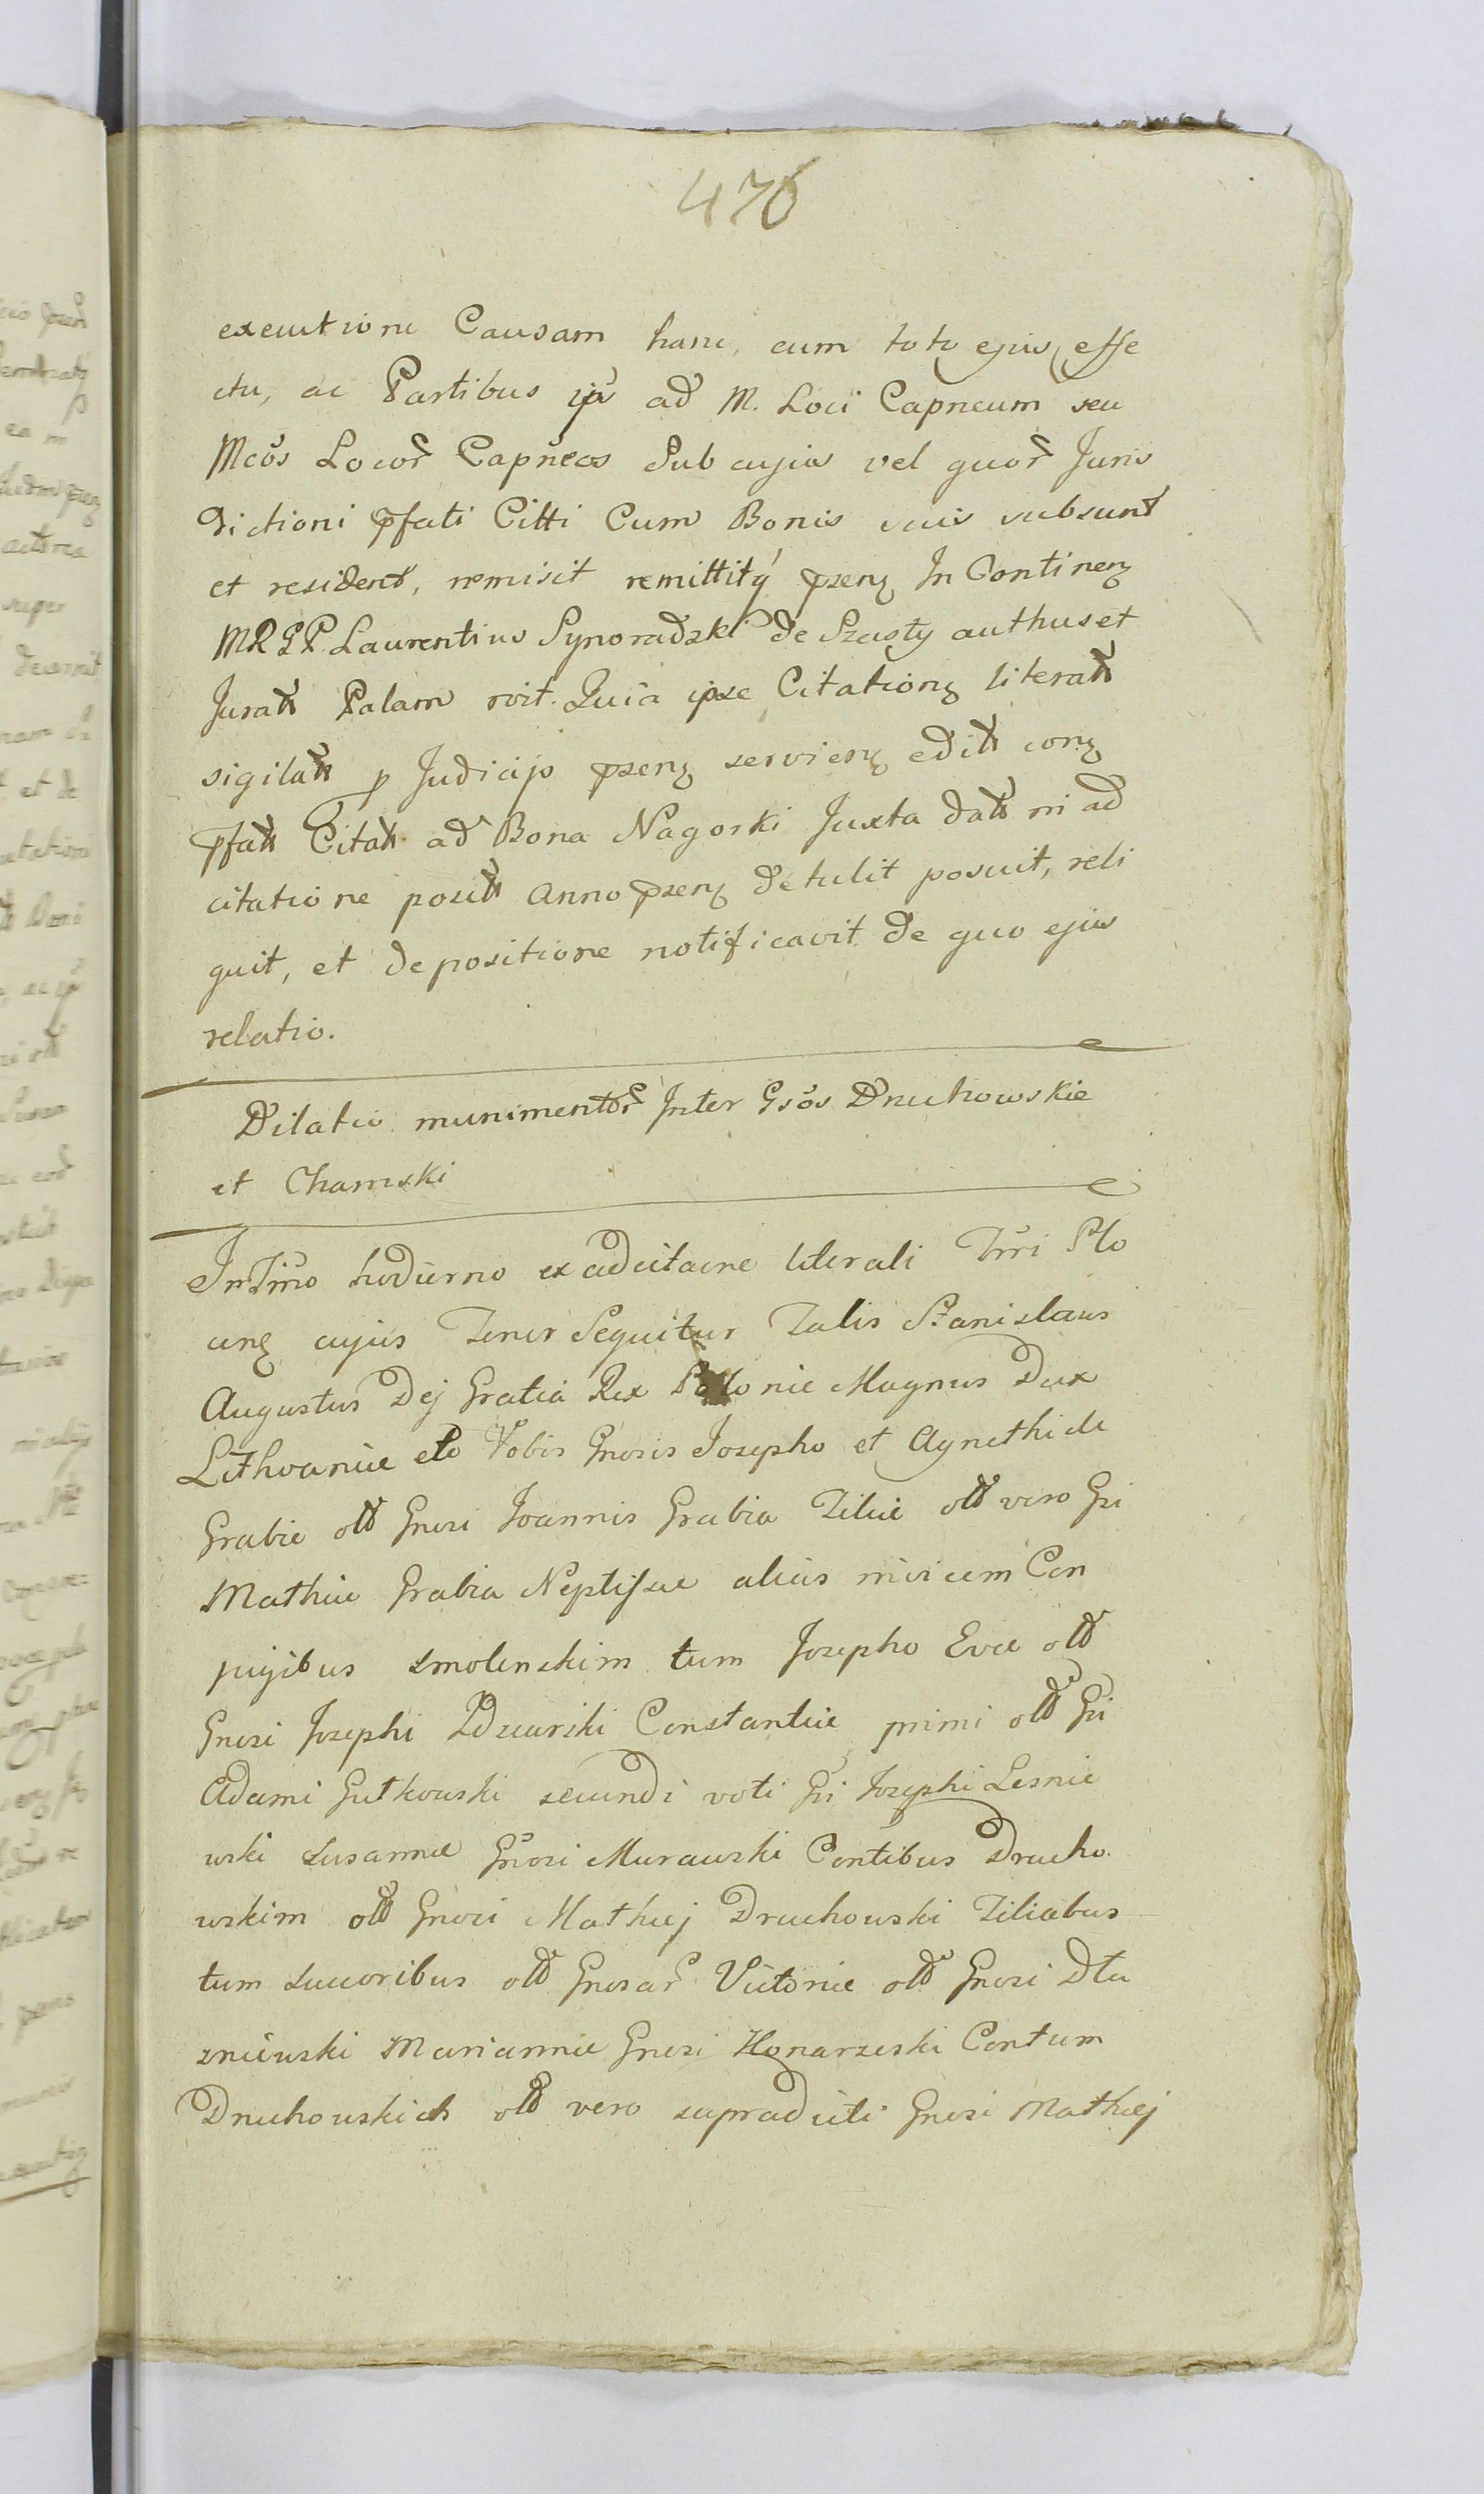 476
executione Causam hanc, cum toto ejus effe
ctu, ac Partibus ijs ad M. Loci Capneum seu
Mcos Locor Capneos Sub cujus vel quor Juris
dictioni pfati Citti Cum Bonis suis subsunt
et resident, remisit remittitq pzenz In Continenz
MRGP. Laurentius Synoradzki de Szasty authus et
Juratt Palam roit. Quia ipse Citationz literatt
sigilatt p Judicijo pzenz servienz editt conz
pfatt Citatt ad Bona Nagorki Juxta datt in ad
citatione positt Anno pzenz detulit posuit, reli
quit, et depositione notificavit de quo ejus
relatio.
Dilatio munimentor Inter Gsos Druchowskie
et Chamski
In Tmo hodierno ex adcitaone literali Trri Plo
cenz cujus Tenor Sequitur Talis Stanislaus
Augustus Dej Gratia Rex Polonie Magnus Dux
Lithvanie etc Vobis Gnosis Josepho et Agnethi de
Grabie olt Gnosi Joannis Grabia Filie olt vero Gsi
Mathie Grabia Neptisue alias invicem Con
jugibus Smolenskim tum Josepho Eve olt
Gnosi Josephi Zdziarski Constantie primi olt Gsi
Adami Gutkowski secundi voti Gsi Josephi Lesnie
wski Susanne Gnosi Murawski Contibus Drucho
wskim olt Gnosi Mathiej Druchowski Filiabus
tum Succoribus olt Gnosar Victorie olt Gnosi Dłu
zniewski Marianne Gnosi Konarzeski Contum
Druchowskich olt vero supradicti Gnosi Mathiej